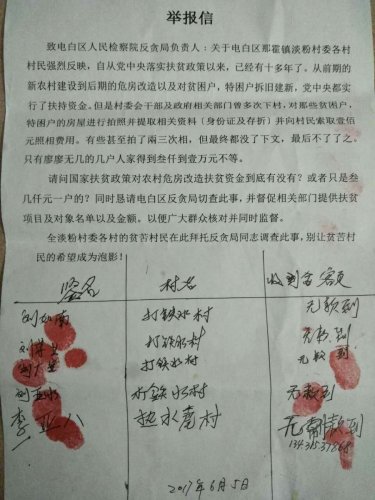 举报信
致电白区人民检察院反贪局负责人:关于电白区那霍镇淡粉村委各村
村民强烈反映,自从党中央落实扶贫政策以来,已经有十多年了。从前期的
新农村建设到后期的危房改造以及对贫困户,特困户拆旧建新,党中央都实
行了扶持资金。但是村委会干部及政府相关部门曾多次下村,对那些贫困户,
特困户的房屋进行拍照并提取相关资料(身份证及存折)并向村民索取壹佰
元照相费用。有些甚至拍了兩三次相,但最终都没了下文,最后不了了之。
只有廖廖无几的几户人家得到叁仟到壹万元不等。
请问国家扶贫政策对农村危房改造扶贫资金到底有没有?或者只是叁
几仟元一户的?同时恳请电白区反贪局切查此事,并督促相关部门提供扶贫
项目及对象名单以及金额。以便广大群众核对并同时监督。
全淡粉村委各村的贫苦村民在此拜托反贪局同志调查此事,别让贫苦村
民的希望成为泡影!
签名 村名 收到金额
打铁水村 无款到
打铁水村 无款到
打铁水村 无款到
刘亚水 打铁水村 无款到
李亚八 热水斋村 无款到
2017年6月5日